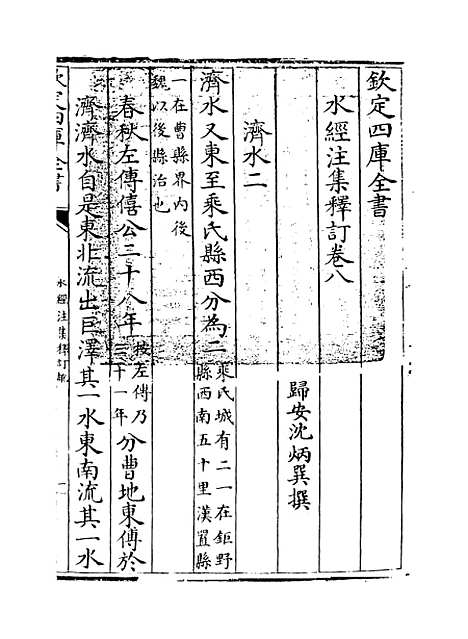 欽定四庫全書
水經注集釋訂卷八
歸安沈炳巽撰
濟水二
濟水又東至乘氏縣西分為二
乘氏城有二一在鉅野
縣西南五十里漢置縣
一在曹縣界内後
魏以後縣治也
春秋左傳僖公三十八年
按左傳乃
三十一年
分曹地東傅於
濟濟水自是東非流出巨澤其一水東南流其一水
欽定四庫全書
水經注集釋訂
一